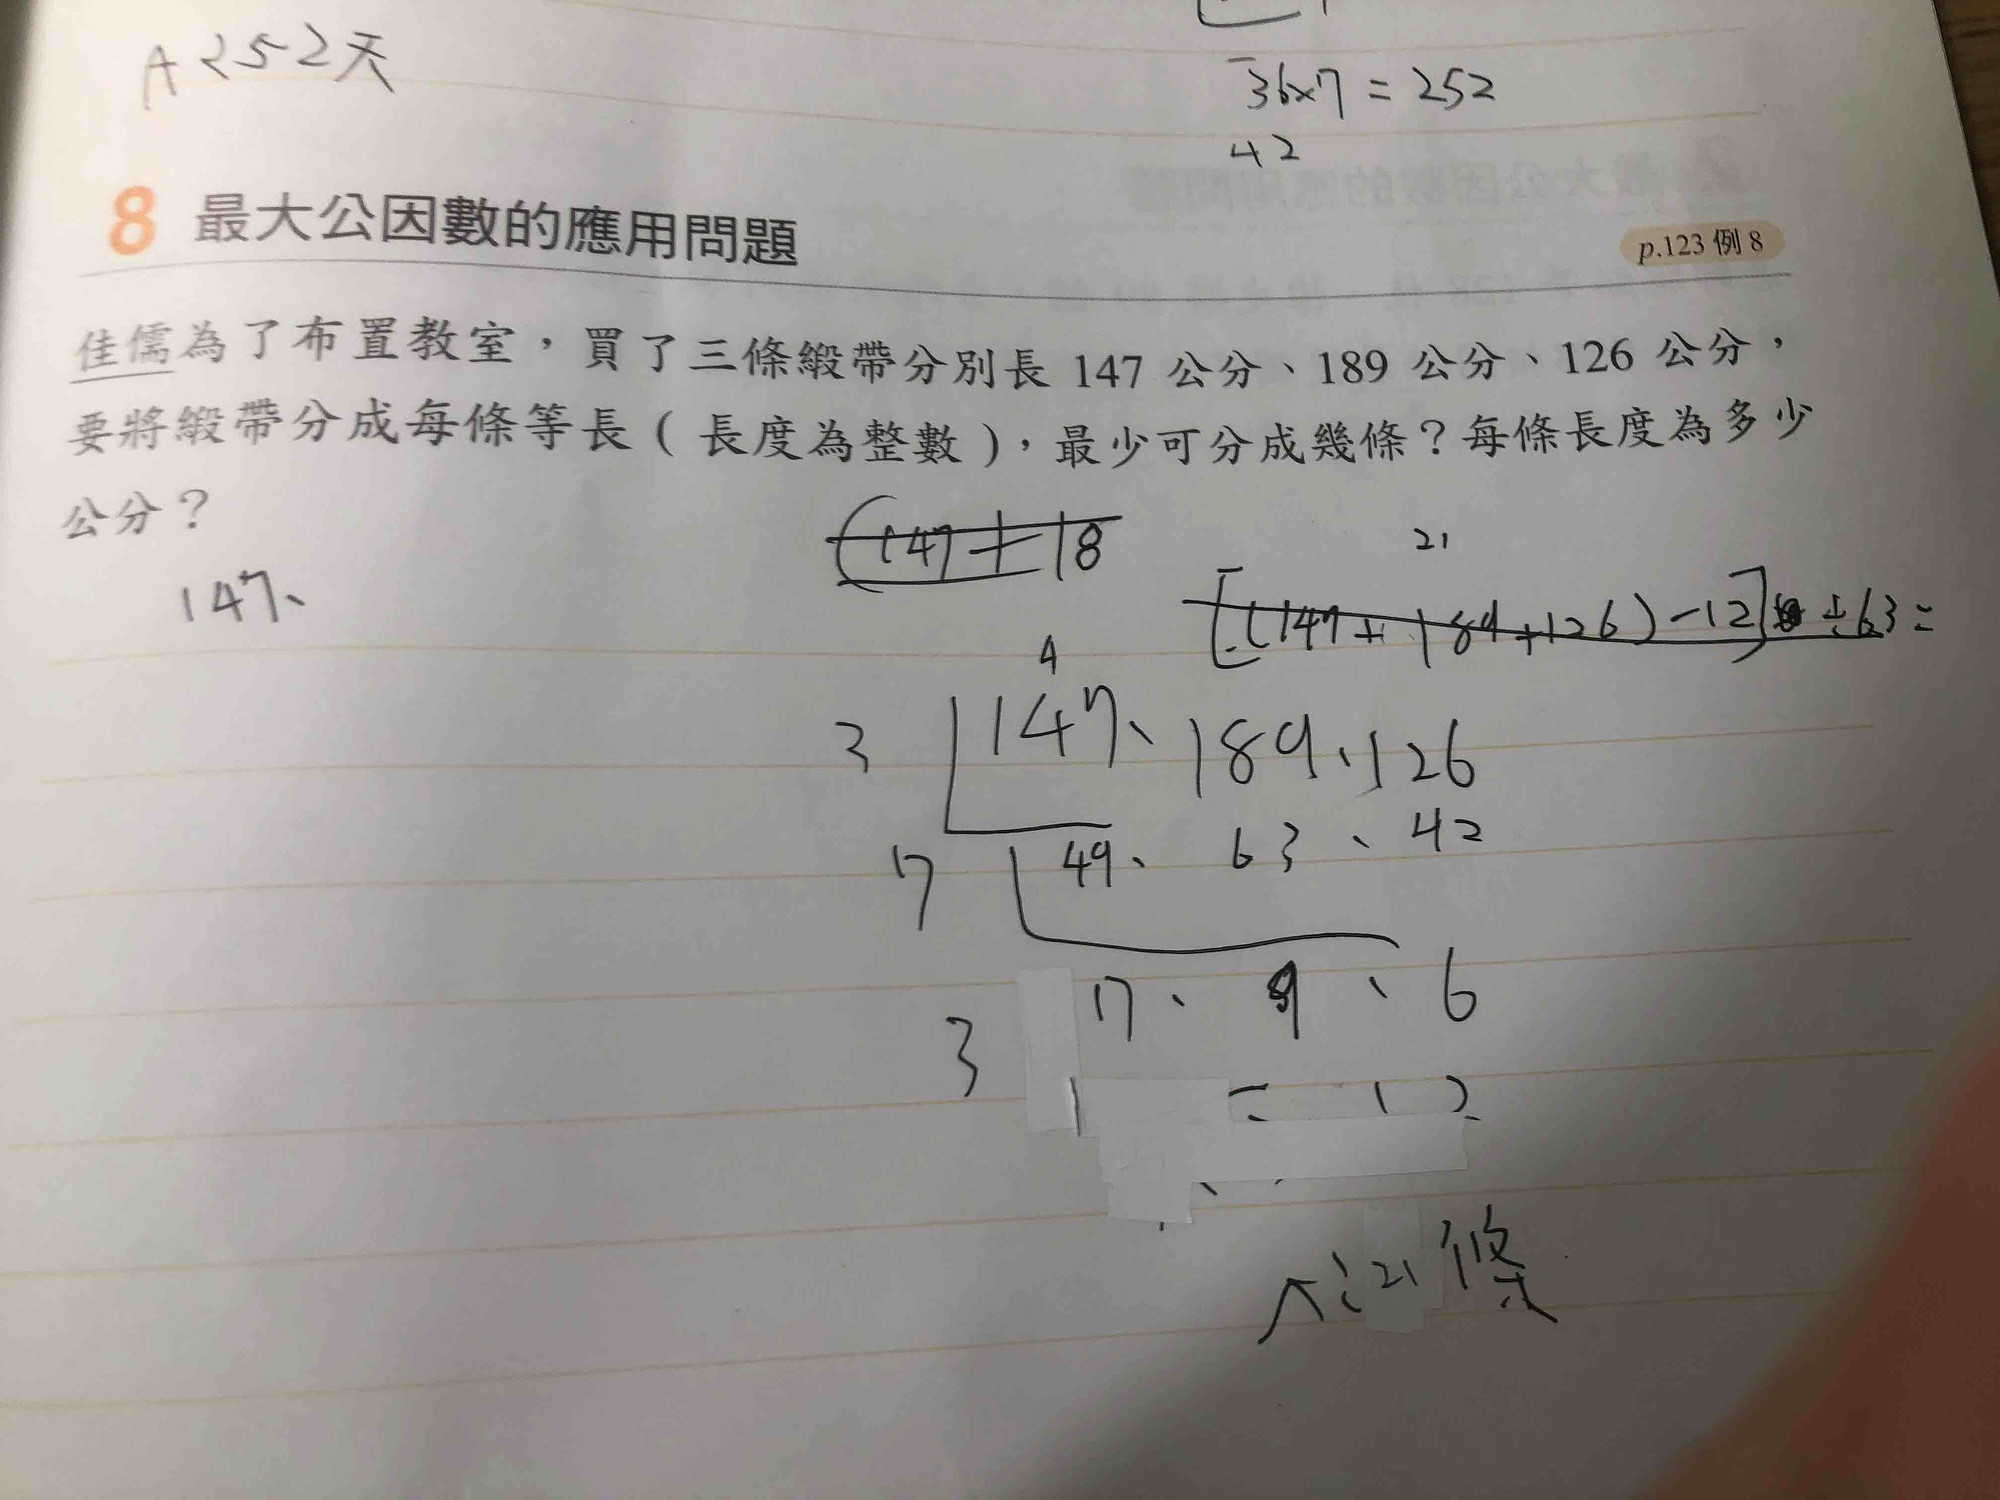 A 252天
36×7=252
42
8 最大公因數的應用問題
p.123 例 8
佳儒為了布置教室，買了三條緞帶分別長 147 公分、189 公分、126 公分，
要將緞帶分成每條等長（長度為整數），最少可分成幾條？每條長度為多少
公分？
147、
(147+18
21
[(147+189+126)-12]÷63=
4
3 147、189、126
7 49、63、42
3 7、9、6
21條